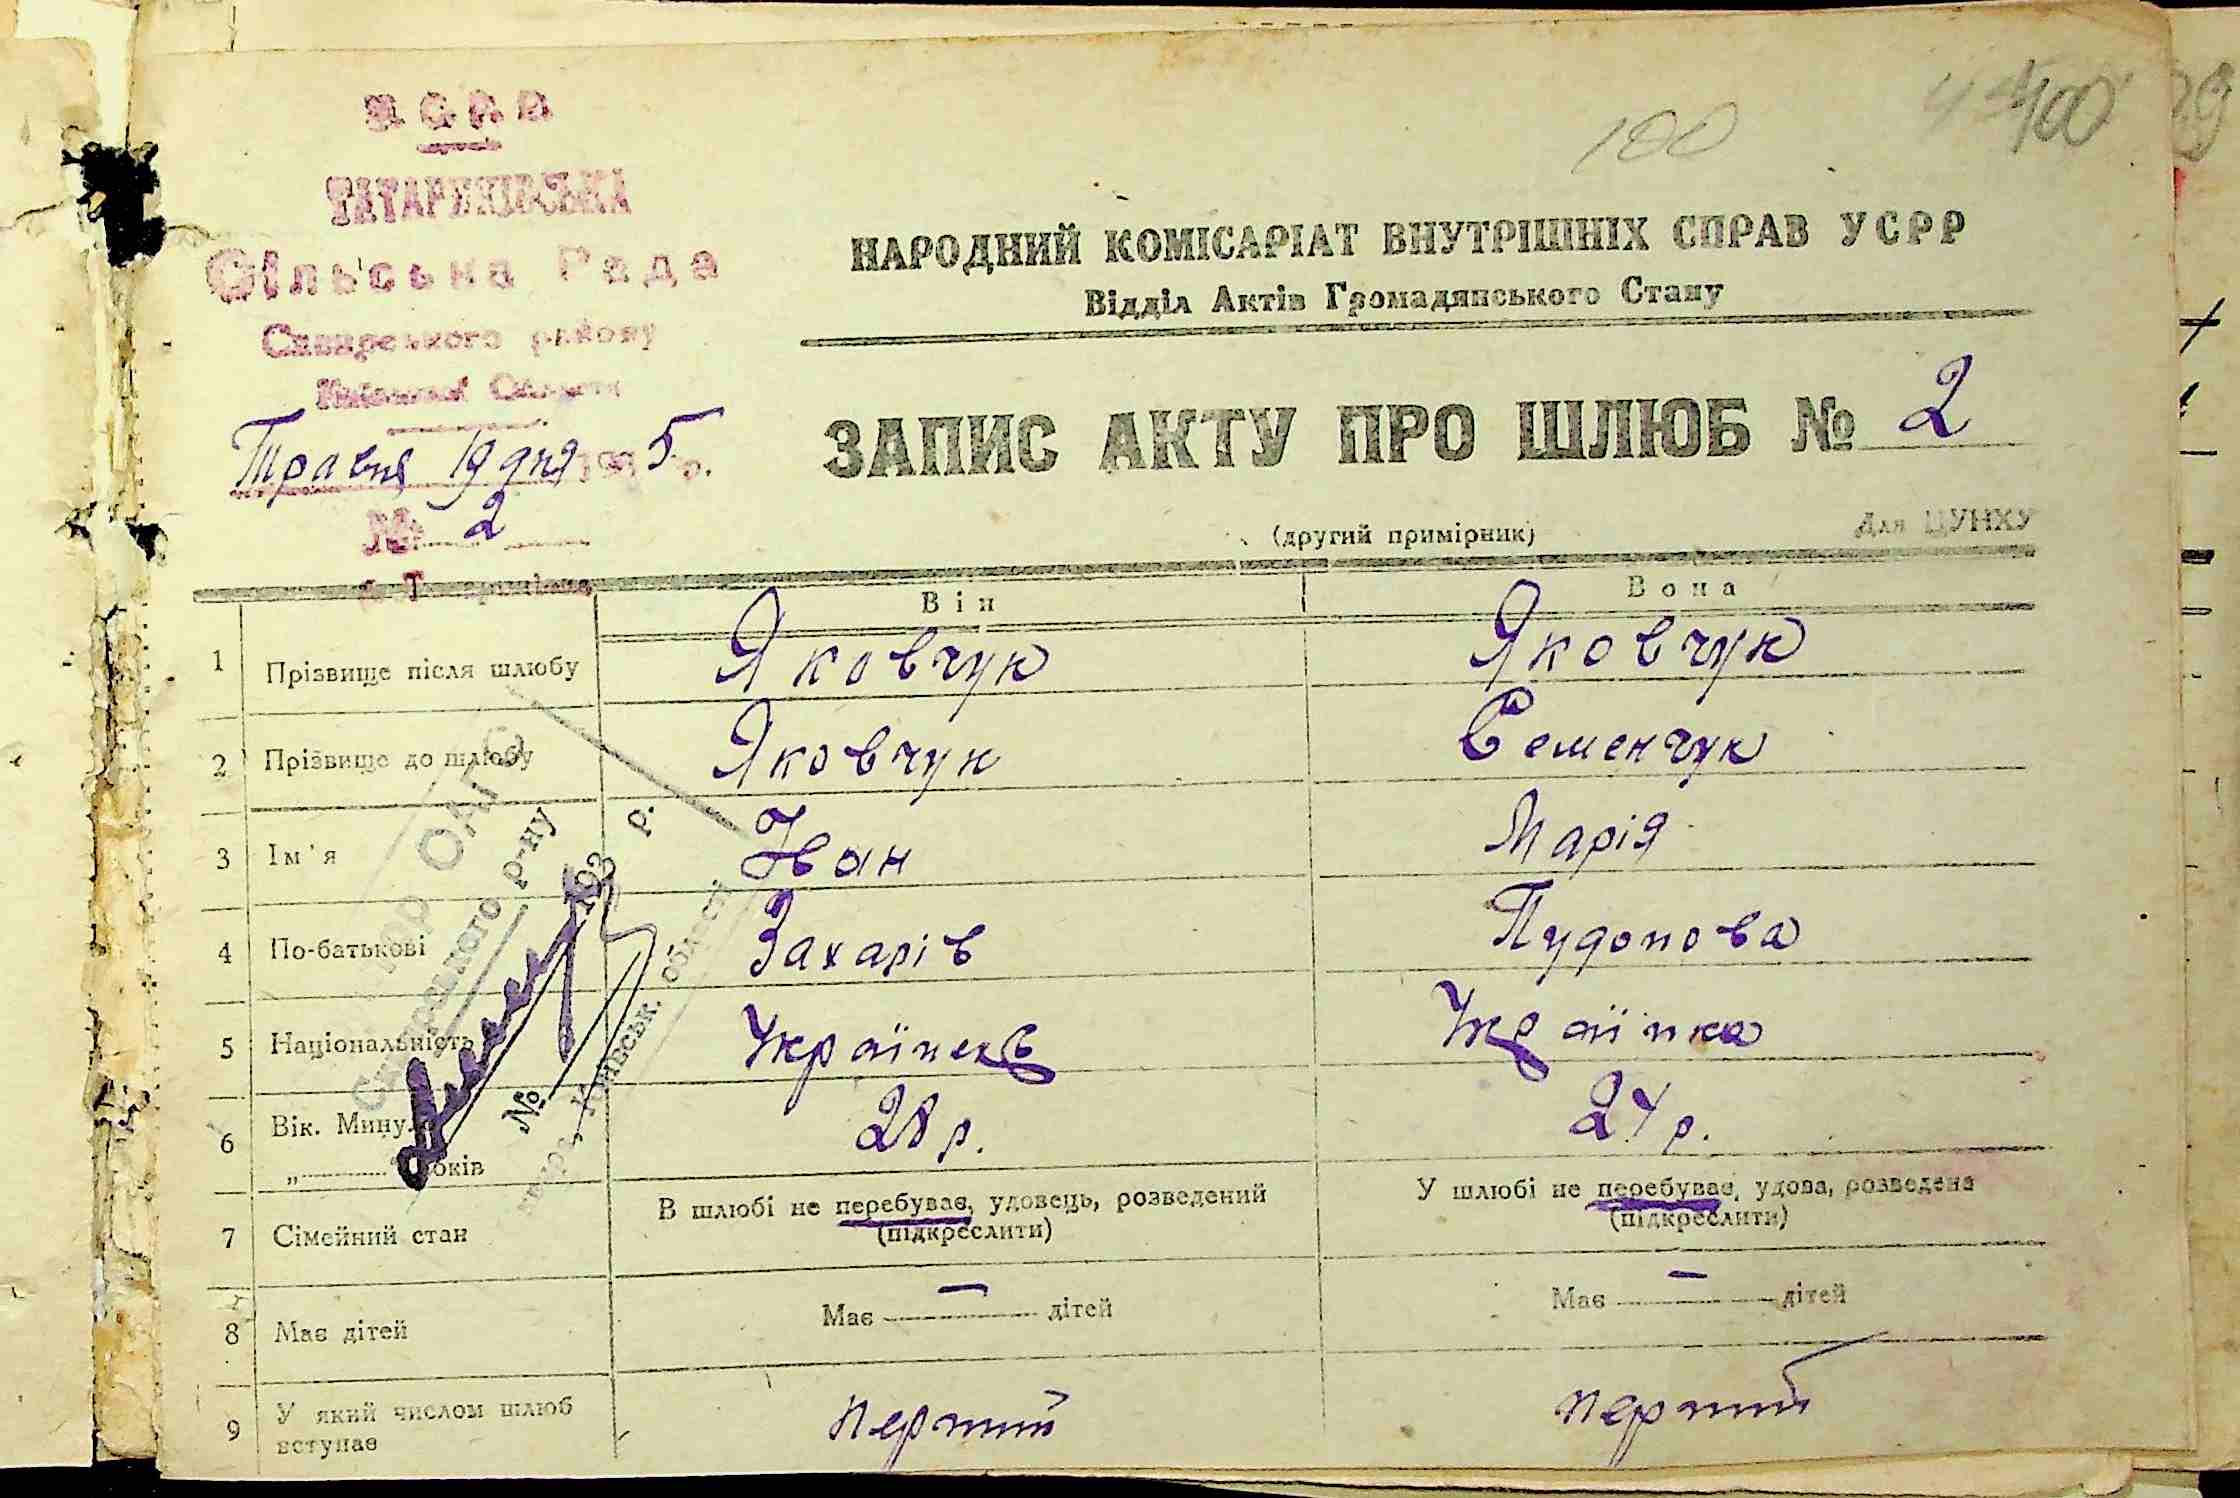 УСРР
ТАТАРИНІВСЬКА
Сільська Рада
Сквирського району
Київської Области
Травня 19 дня 1935 р.
№ 2
с. Татаринівка
100
100
29
НАРОДНИЙ КОМІСАРІАТ ВНУТРІШНІХ СПРАВ УСРР
Відділ Актів Громадянського Стану
ЗАПИС АКТУ ПРО ШЛЮБ № 2
(другий примірник)
Для ЦУНХУ
Він Вона
1 Прізвище після шлюбу Яковчук Яковчук
2 Прізвище до шлюбу Яковчук Семенчук
3 Ім'я Іван Марія
4 По-батькові Захарів Пудонова
5 Національність Українець Українка
6 Вік. Минул. 28 р. 24 р.
„ років
7 Сімейний стан В шлюбі не перебуває, удовець, розведений У шлюбі не перебуває, удова, розведена
(підкреслити) (підкреслити)
8 Має дітей Має — дітей Має — дітей
9 У який числом шлюб вступає перший перший
ОАГС
Сквирського р-ну
193 р.
№
Київськ. області